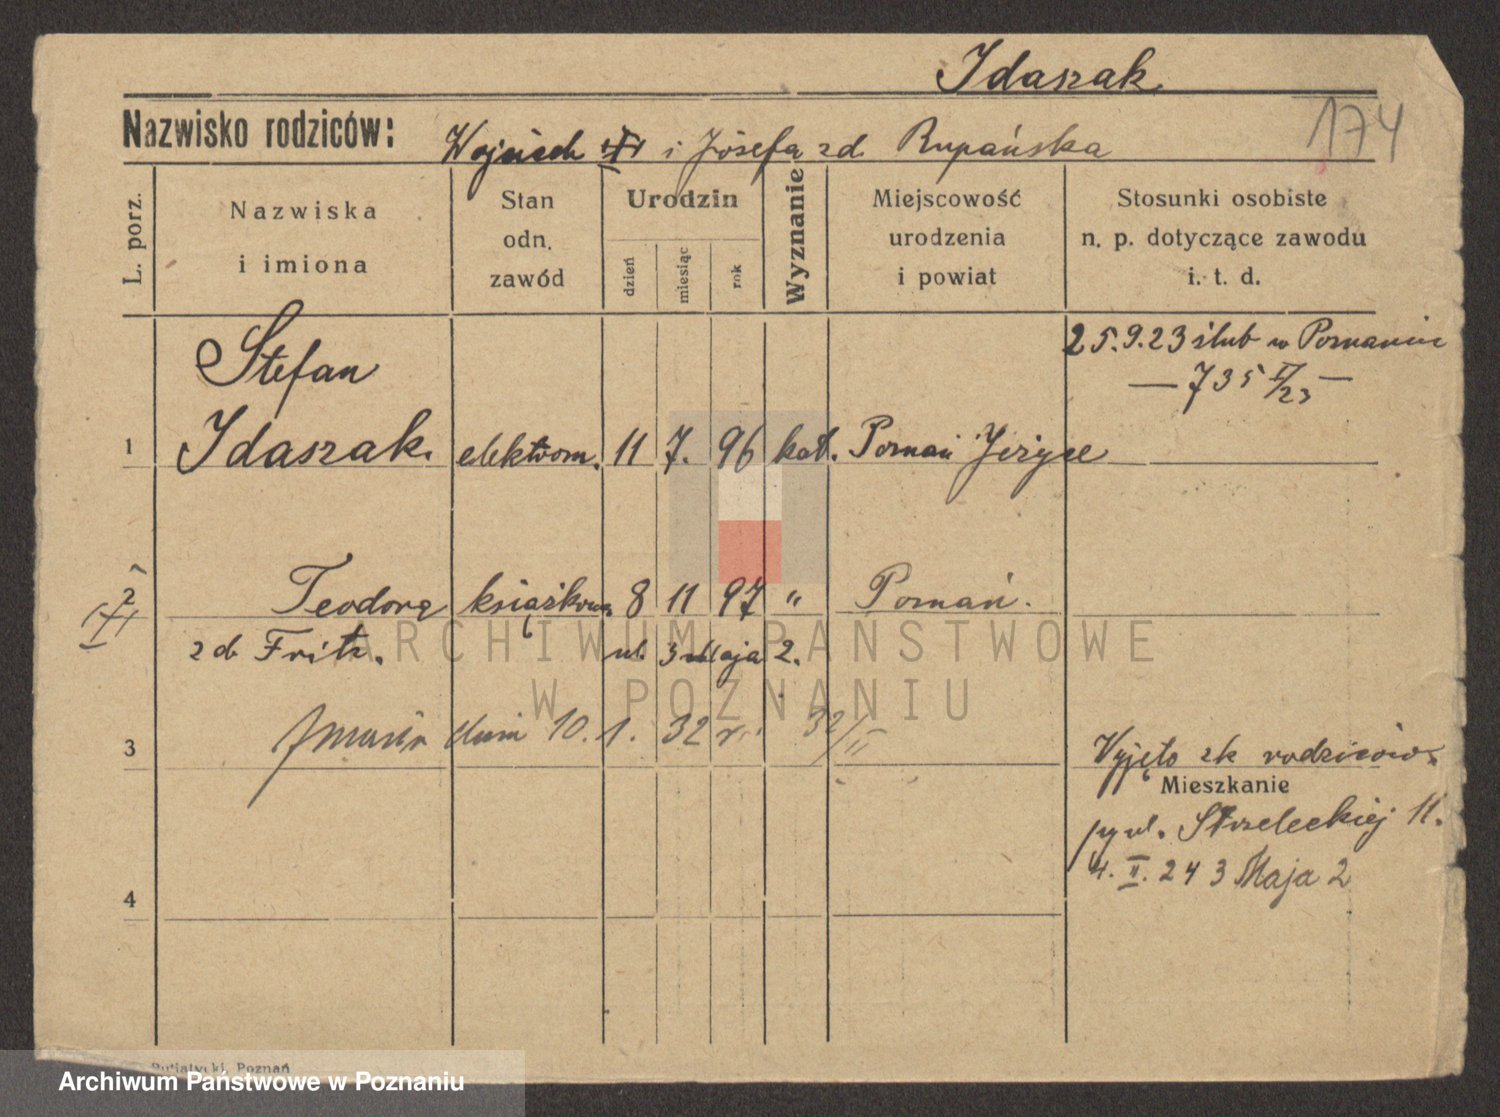 Idaszak
174
Nazwisko rodziców: Wojciech i Józefa zd. Rupańska
L. porz.
Nazwiska i imiona
Stan odn. zawód
Urodzin
dzień
miesiąc
rok
Wyznanie
Miejscowość urodzenia i powiat
Stosunki osobiste n. p. dotyczące zawodu i. t. d.
Stefan
25.9.23 ślub w Poznaniu
— 735 II/23 —
1 Idaszak. elektrom. 11 7. 96 kat. Poznań Jeżyce
2 Teodora książkowa 8 11 97 " Poznań.
zd. Fritz. ul. 3 Maja 2.
3 zmarła dnia 10. 1. 32 r. 32/II
Wyjęto zk rodziców
Mieszkanie
py ul. Strzeleckiej 11.
4. II. 24 3 Maja 2
4
Putiatycki, Poznań
ARCHIWUM PAŃSTWOWE
W POZNANIU
Archiwum Państwowe w Poznaniu